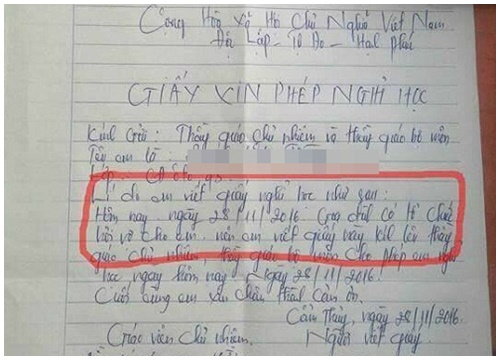 Cộng Hòa Xã Hội Chủ Nghĩa Việt Nam
Độc Lập - Tự Do - Hạnh Phúc
GIẤY XIN PHÉP NGHỈ HỌC
Kính Gửi: Thầy giáo chủ nhiệm và thầy giáo bộ môn
Tên em là:
Lớp: CĐ ôtô
Lí do em viết giấy nghỉ học như sau:
Hôm nay ngày 28/11/2016. Gia đình có tổ chức
hỏi vợ cho em nên em viết giấy này kính lên thầy
giáo chủ nhiệm, thầy giáo bộ môn cho phép em nghỉ
học ngày hôm nay Ngày 28/11/2016.
Cuối cùng em xin chân thành cảm ơn.
Cẩm Thủy, ngày 28/11/2016.
Giáo viên chủ nhiệm.
Người viết giấy